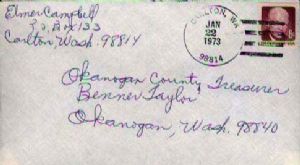 Elmer Campbell
P.O. Box 133
Carlton Wash. 98814
CARLTON, WA
JAN
22
1973
98814
Okanogan County Treasurer
Benner Taylor
Okanogan, Wash. 98840